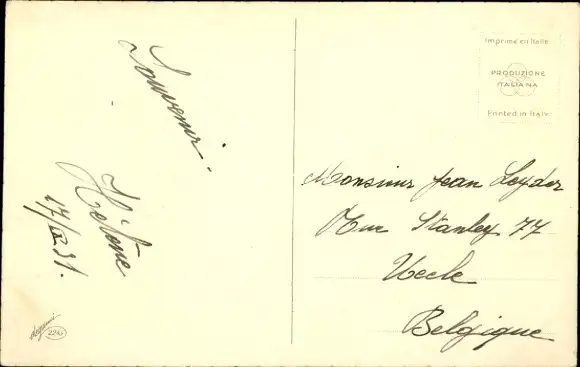 Souvenir.
17/IX 31.
2245
Imprimé en Italie
PRODUZIONE
ITALIANA
Printed in Italy
Monsieur Jean Leyder
Rue Stanley 77
Uccle
Belgique